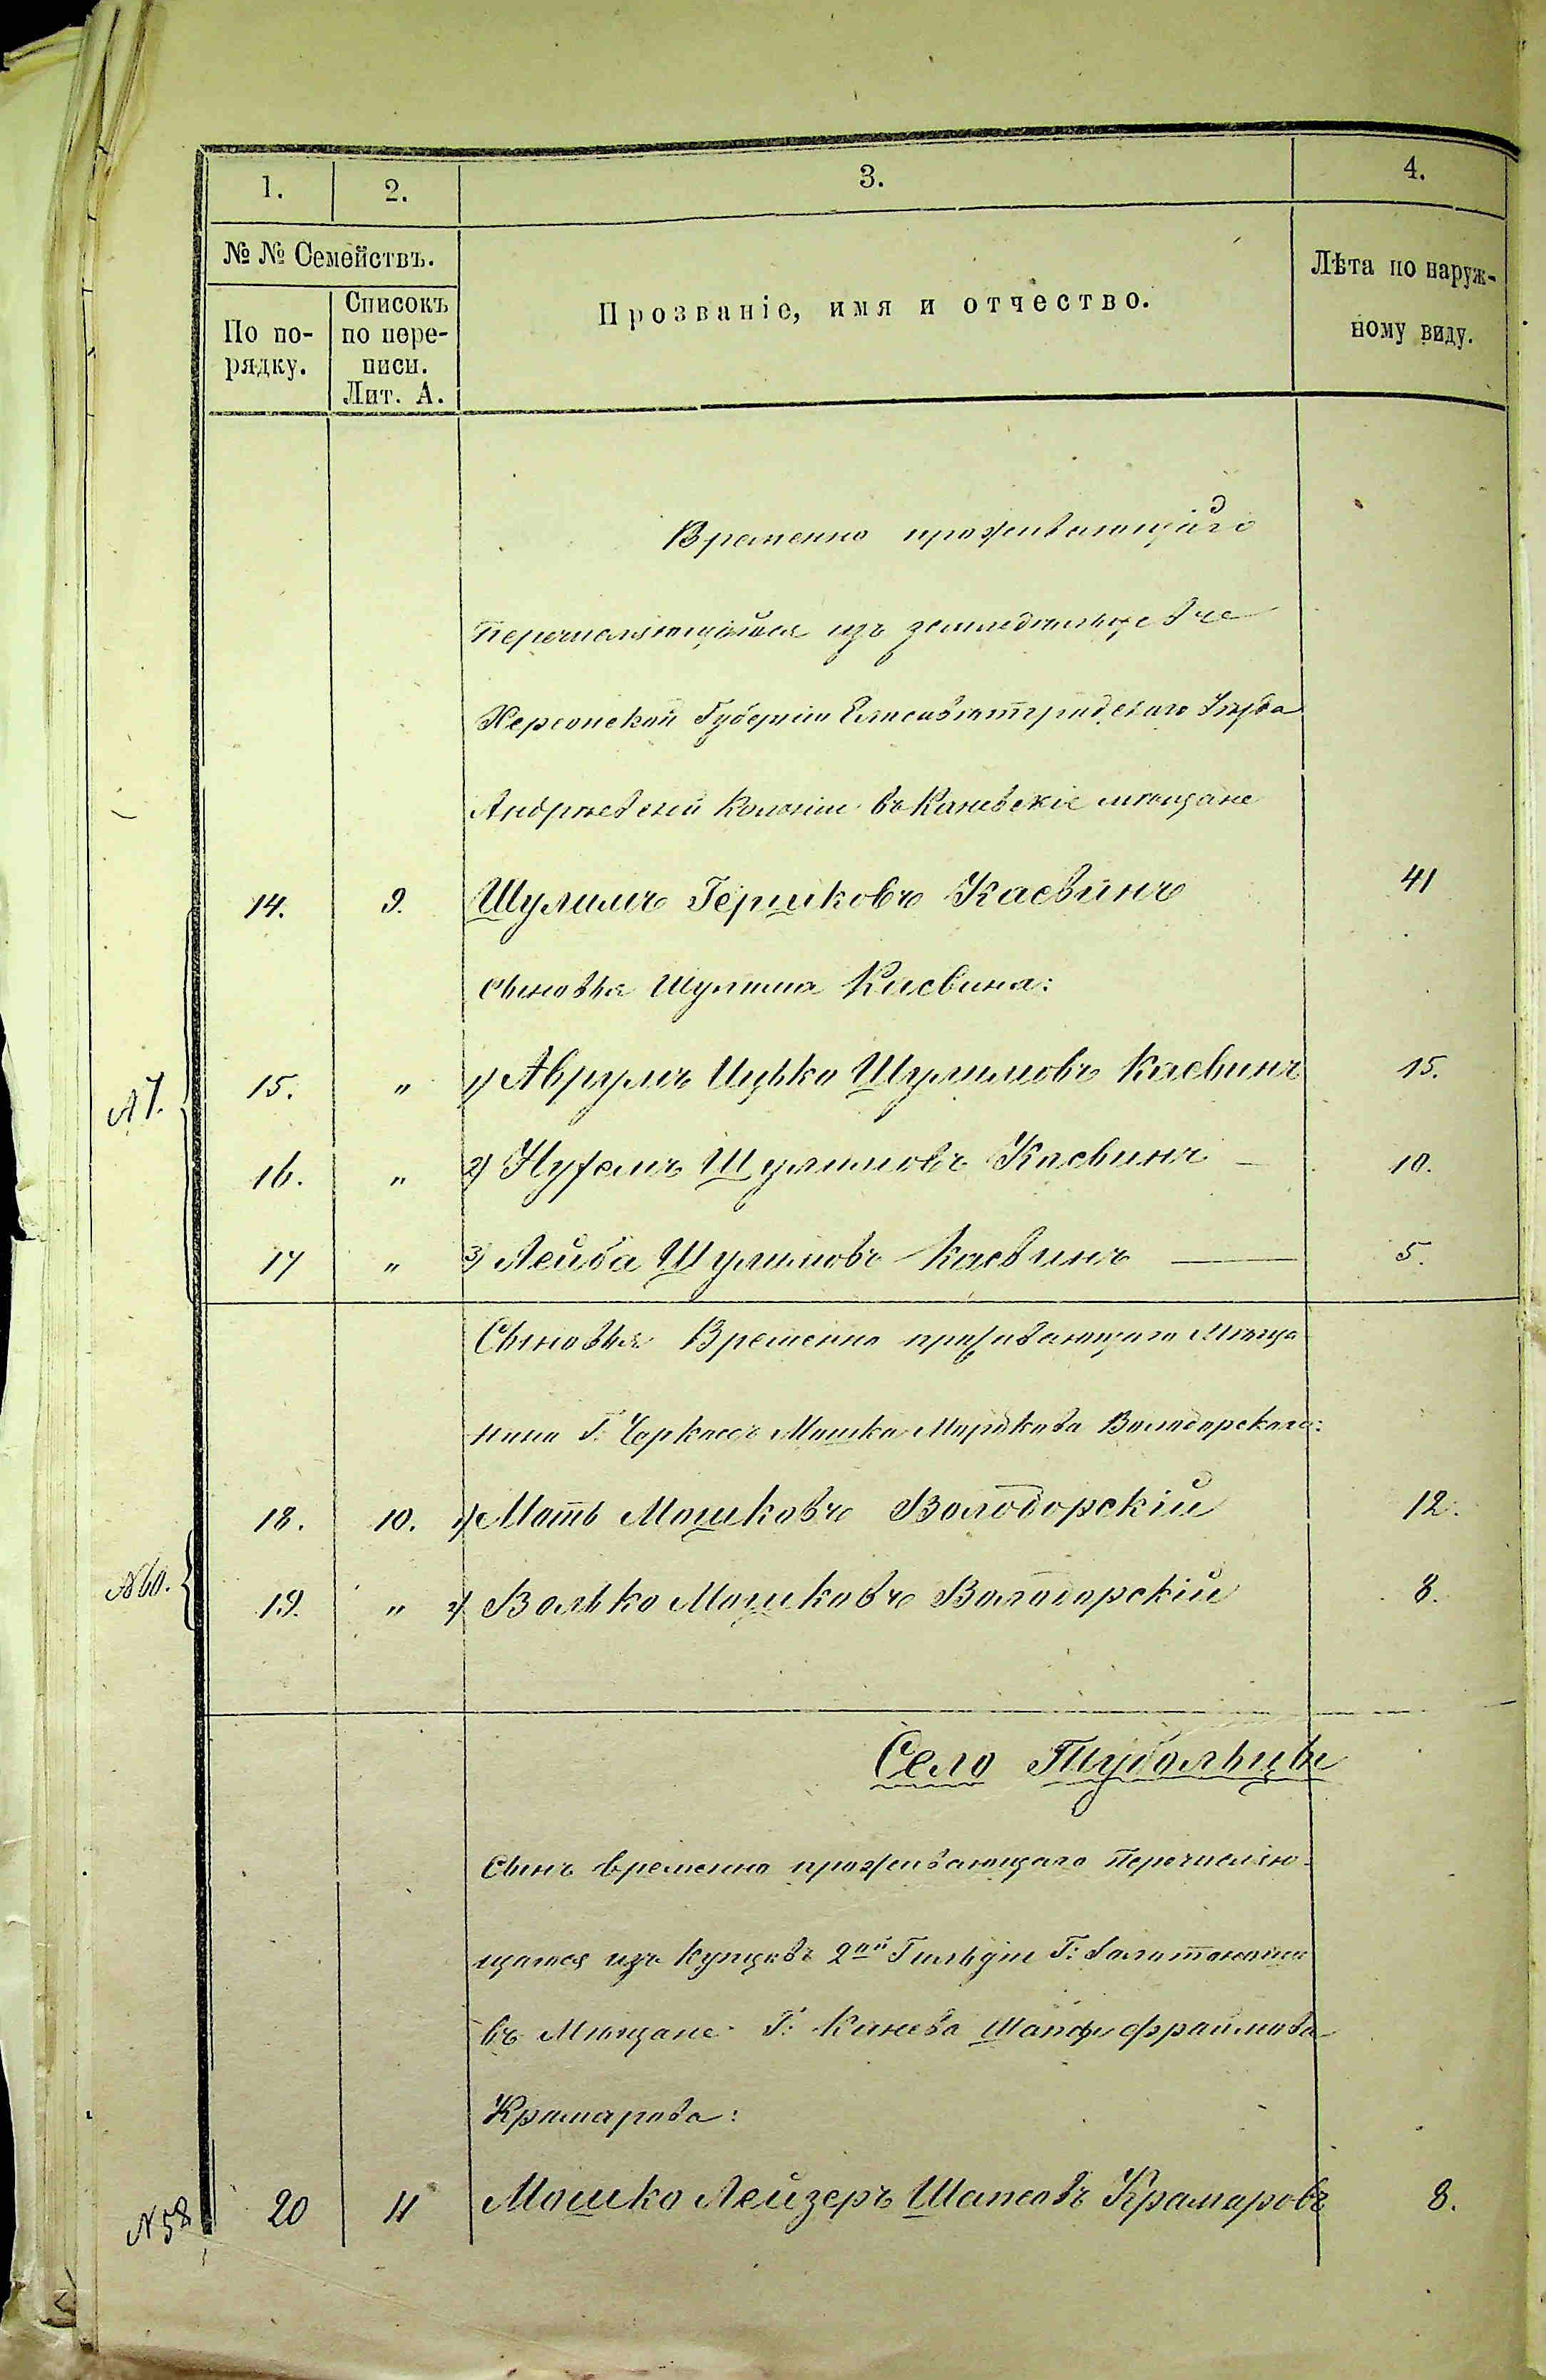 1. 2. 3. 4.
№ № Семействъ.
По по-
рядку.
Списокъ
по пере-
писи.
Лит. А.
Прозваніе, имя и отчество.
Лѣта по наруж-
ному виду.
Временно проживающіаго
перечисляющійся изъ
Херсонской Губерніи Елисаветградскаго Уѣзда
Андрѣевской Колоніи въ Каневскіе мѣщане
14. 9. Шулимъ Гершковъ Касвинъ 41
Сыновья Шулима Касвина:
15. " 1) Аврумъ Ицько Шулимовъ Касвинъ 15.
16. " 2) Нухемъ Шулимовъ Касвинъ — 10.
17 " 3) Лейба Шулимовъ Касвинъ — 5.
Сыновья Временно проживающаго Мѣща
нина Г. Черкассъ Мошка Мордкова Володорскаго:
18. 10. 1) Моть Мошковъ Володорскій 12.
№60.
19. " 2) Волько Мошковъ Володорскій 8.
Село Тубольцы
Сынъ временно проживающаго перечисляю-
щагося изъ купцовъ 2ой Гильдіи Г:
въ Мѣщане Г: Канева Фраимова
Крамарова:
№58 20 11 Мошко Лейзеръ Шапсовъ Крамаровъ 8.